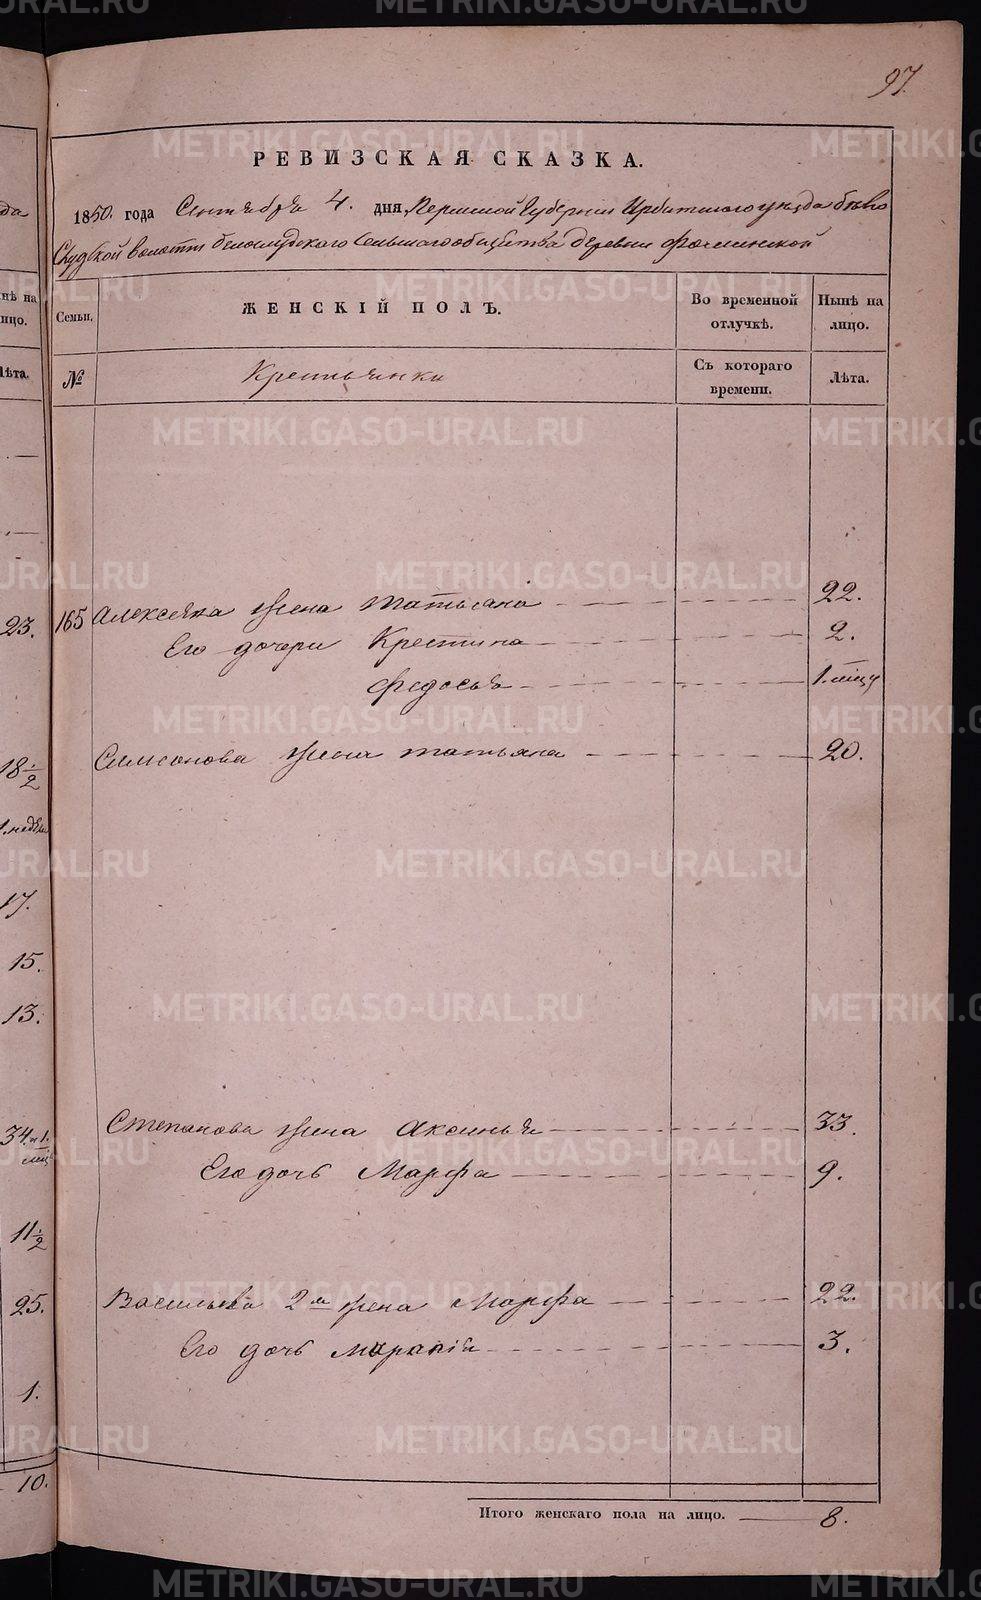 97.
РЕВИЗСКАЯ СКАЗКА.
1850. года Сентября 4. дня Пермской Губернии Ирбитскаго уезда бело
Слудской волости белослудского Сельскаго общества деревни Фоминской
Семьи.
ЖЕНСКІЙ ПОЛЪ.
Во временной отлучкѣ.
Нынѣ на лицо.
№
Крестьянки
Съ котораго времени.
Лѣта.
165 Алексѣева жена Татьяна 22.
Его дочери Крестина 2.
Федосья 1. мѣцъ
Симеонова жена татьяна 20.
Степанова жена Аксинья 33.
Его дочь Марфа 9.
Васильева 2я жена Марфа 22.
Его дочь 3.
Итого женскаго пола на лицо. 8.
нѣ на
ицо.
Лѣта.
23.
18 1/2
1. недѣли
17.
15.
13.
34 и 1. мѣц
11 1/2
25.
1.
10.
METRIKI.GASO-URAL.RU